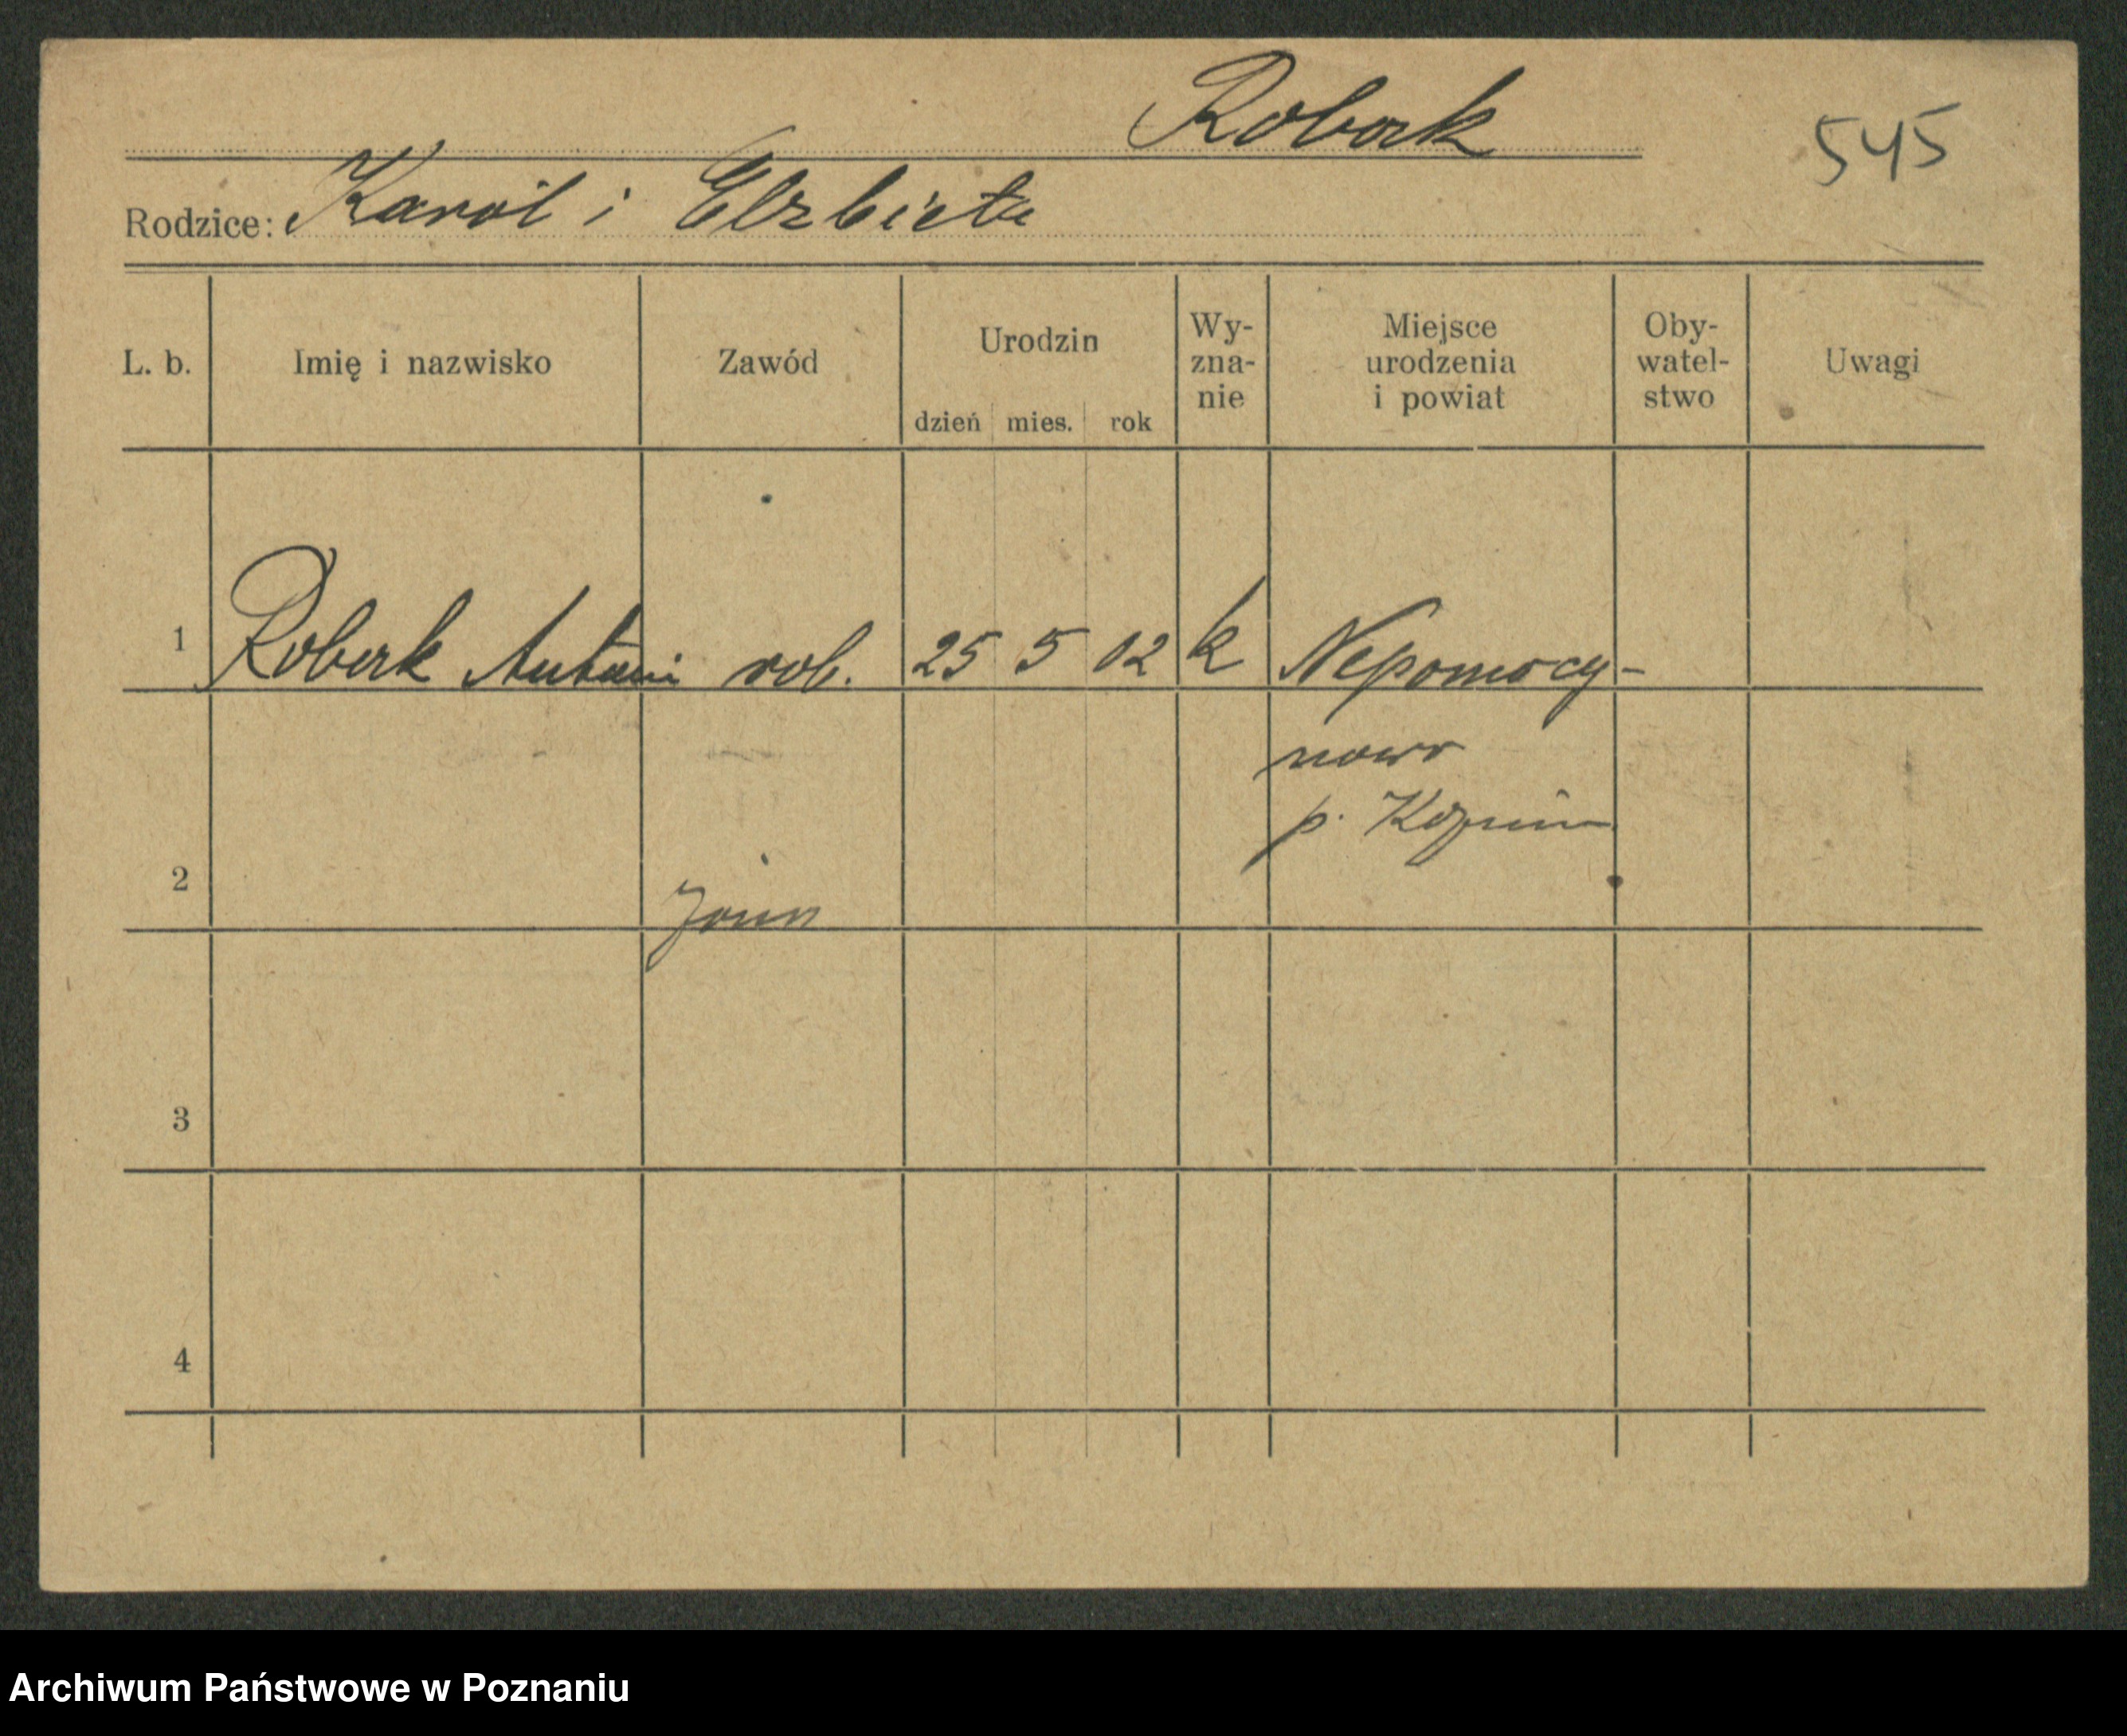 Roback
545
Rodzice: Karol i Elzbieta
L. b.
Imię i nazwisko
Zawód
Urodzin
dzień mies. rok
Wy-
zna-
nie
Miejsce
urodzenia
i powiat
Oby-
watel-
stwo
Uwagi
1 Robak Antoni rob. 25 5 02 k Nepomocy-
nowo
p.
2
3
4
Archiwum Państwowe w Poznaniu